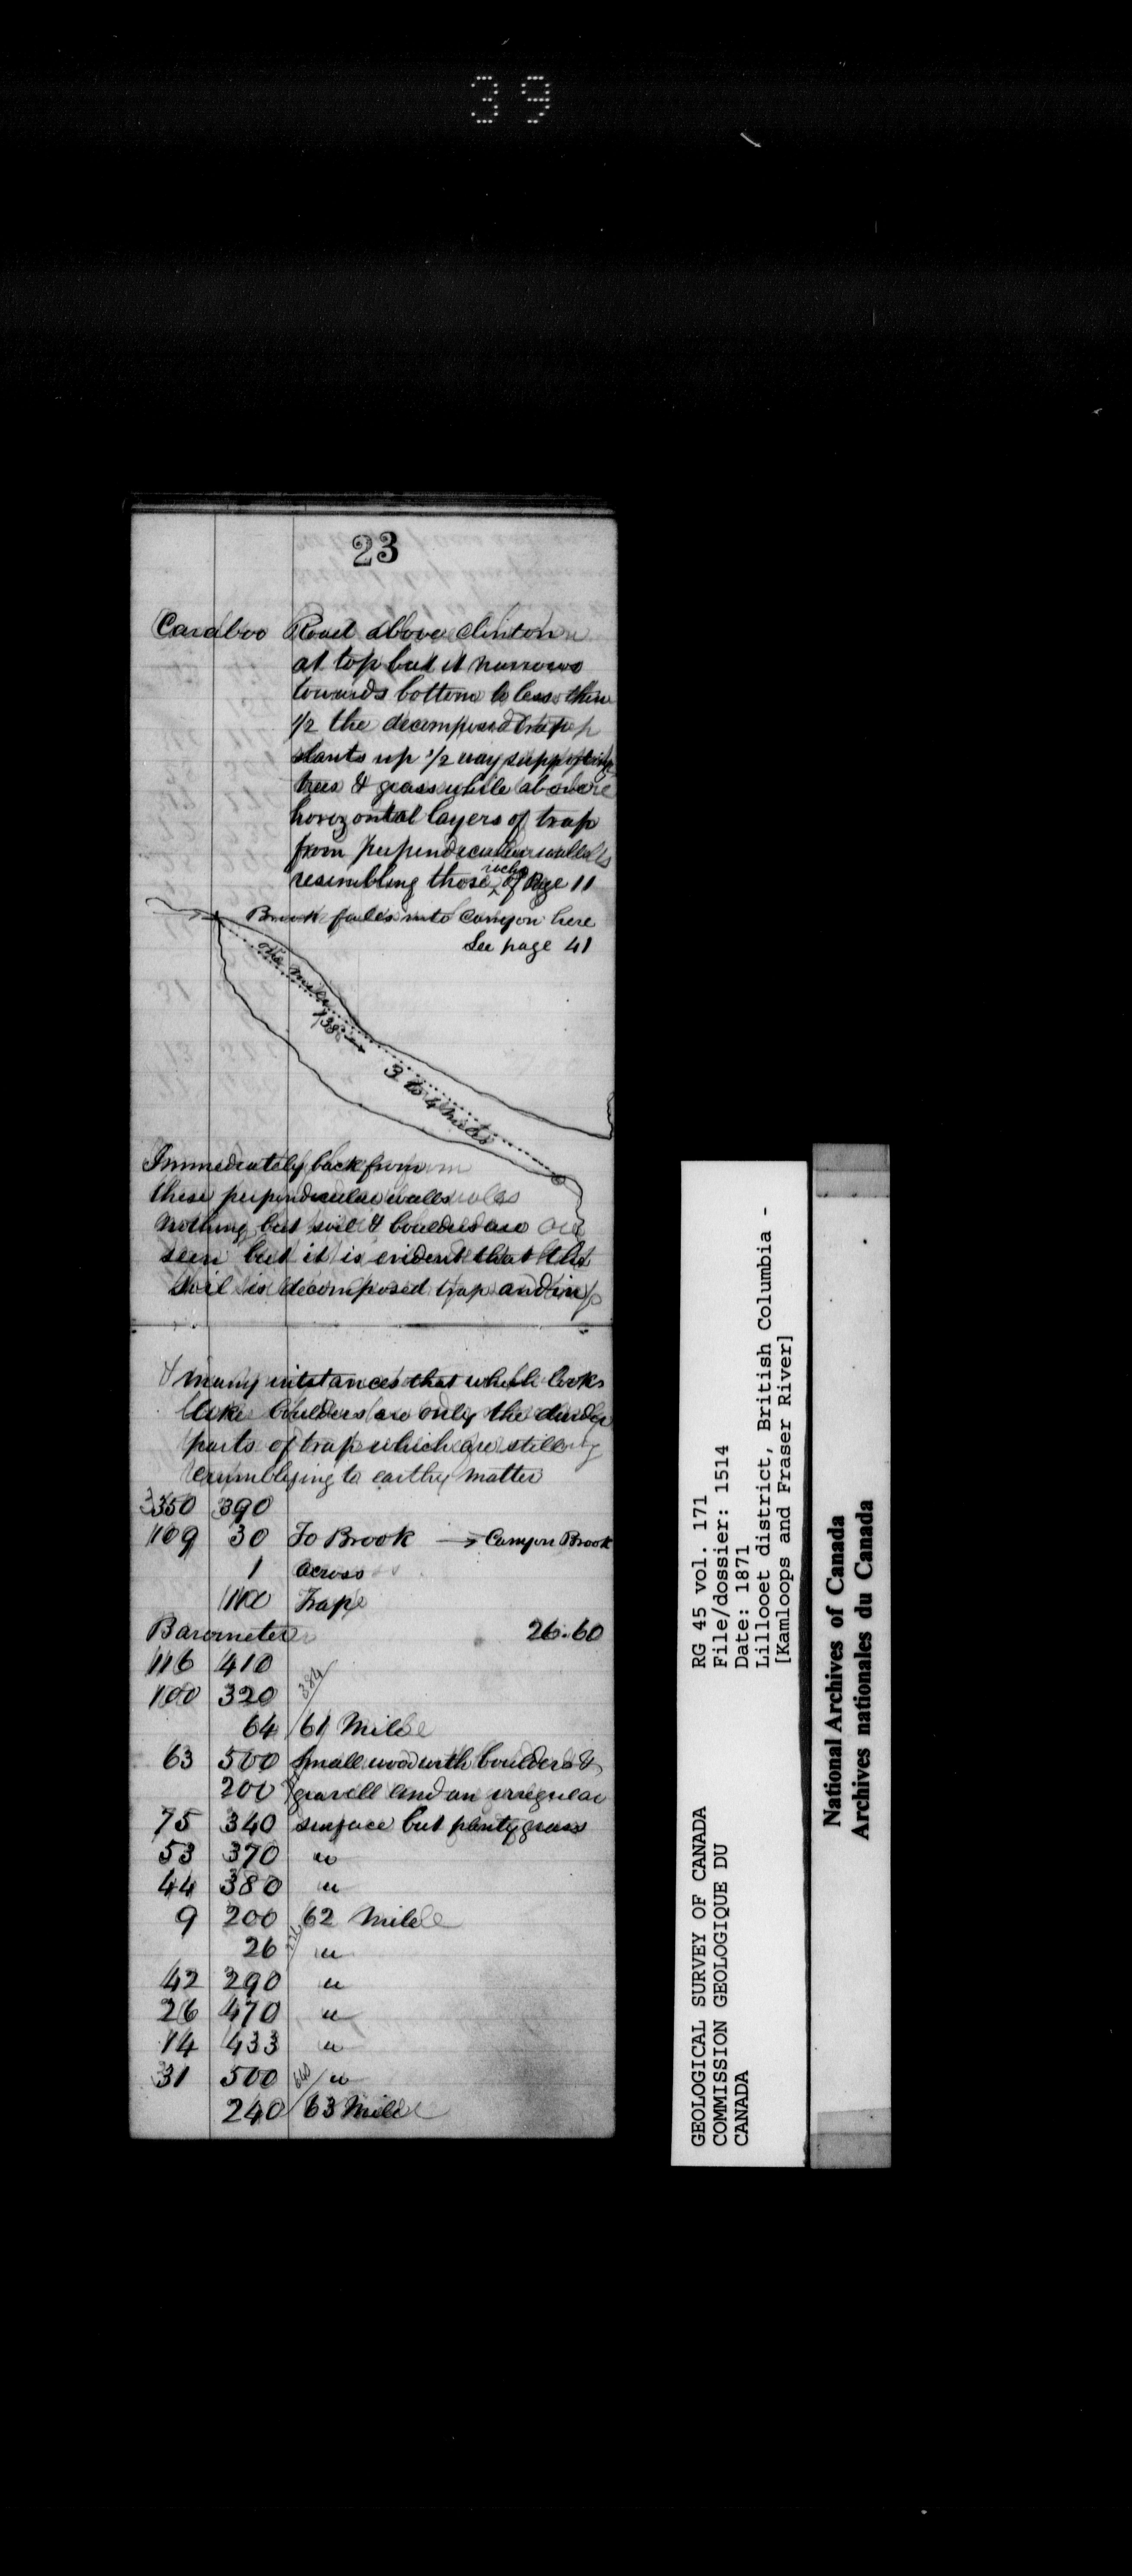 39
23
Caraboo Road above Clinton
at top but it narrows
towards bottom to less then
1/2 the decomposed trap
slants up 1/2 way supporting
trees & grass while above
horizontal layers of trap
from perpendicular walls
resembling those rocks of Page 11
Brook falls into Canyon here
See page 41
one mile
138
3 to 4 miles
Immediately back from
these perpendicular walls
nothing but soil & boulders are
seen but it is evident that the
soil is decomposed trap and in
many intstances that which looks
like boulders are only the
parts of trap which are still
crumblying to earthy matter
350 390
109 30 To Brook → Canyon Brook
1 across
1100 Trap
Barometer 26.60
116 410
100 320 384
64 61 Mile
63 500 Small wood with boulders &
200 gravell and an irregular
75 340 surface but plenty grass
53 370 "
44 380 "
9 200 62 Mile
26 "
42 290 "
26 470 "
14 433 "
31 500 "
240 63 Mile
GEOLOGICAL SURVEY OF CANADA
COMMISSION GEOLOGIQUE DU
CANADA
RG 45 vol. 171
File/dossier: 1514
Date: 1871
Lillooet district, British Columbia -
[Kamloops and Fraser River]
National Archives of Canada
Archives nationales du Canada